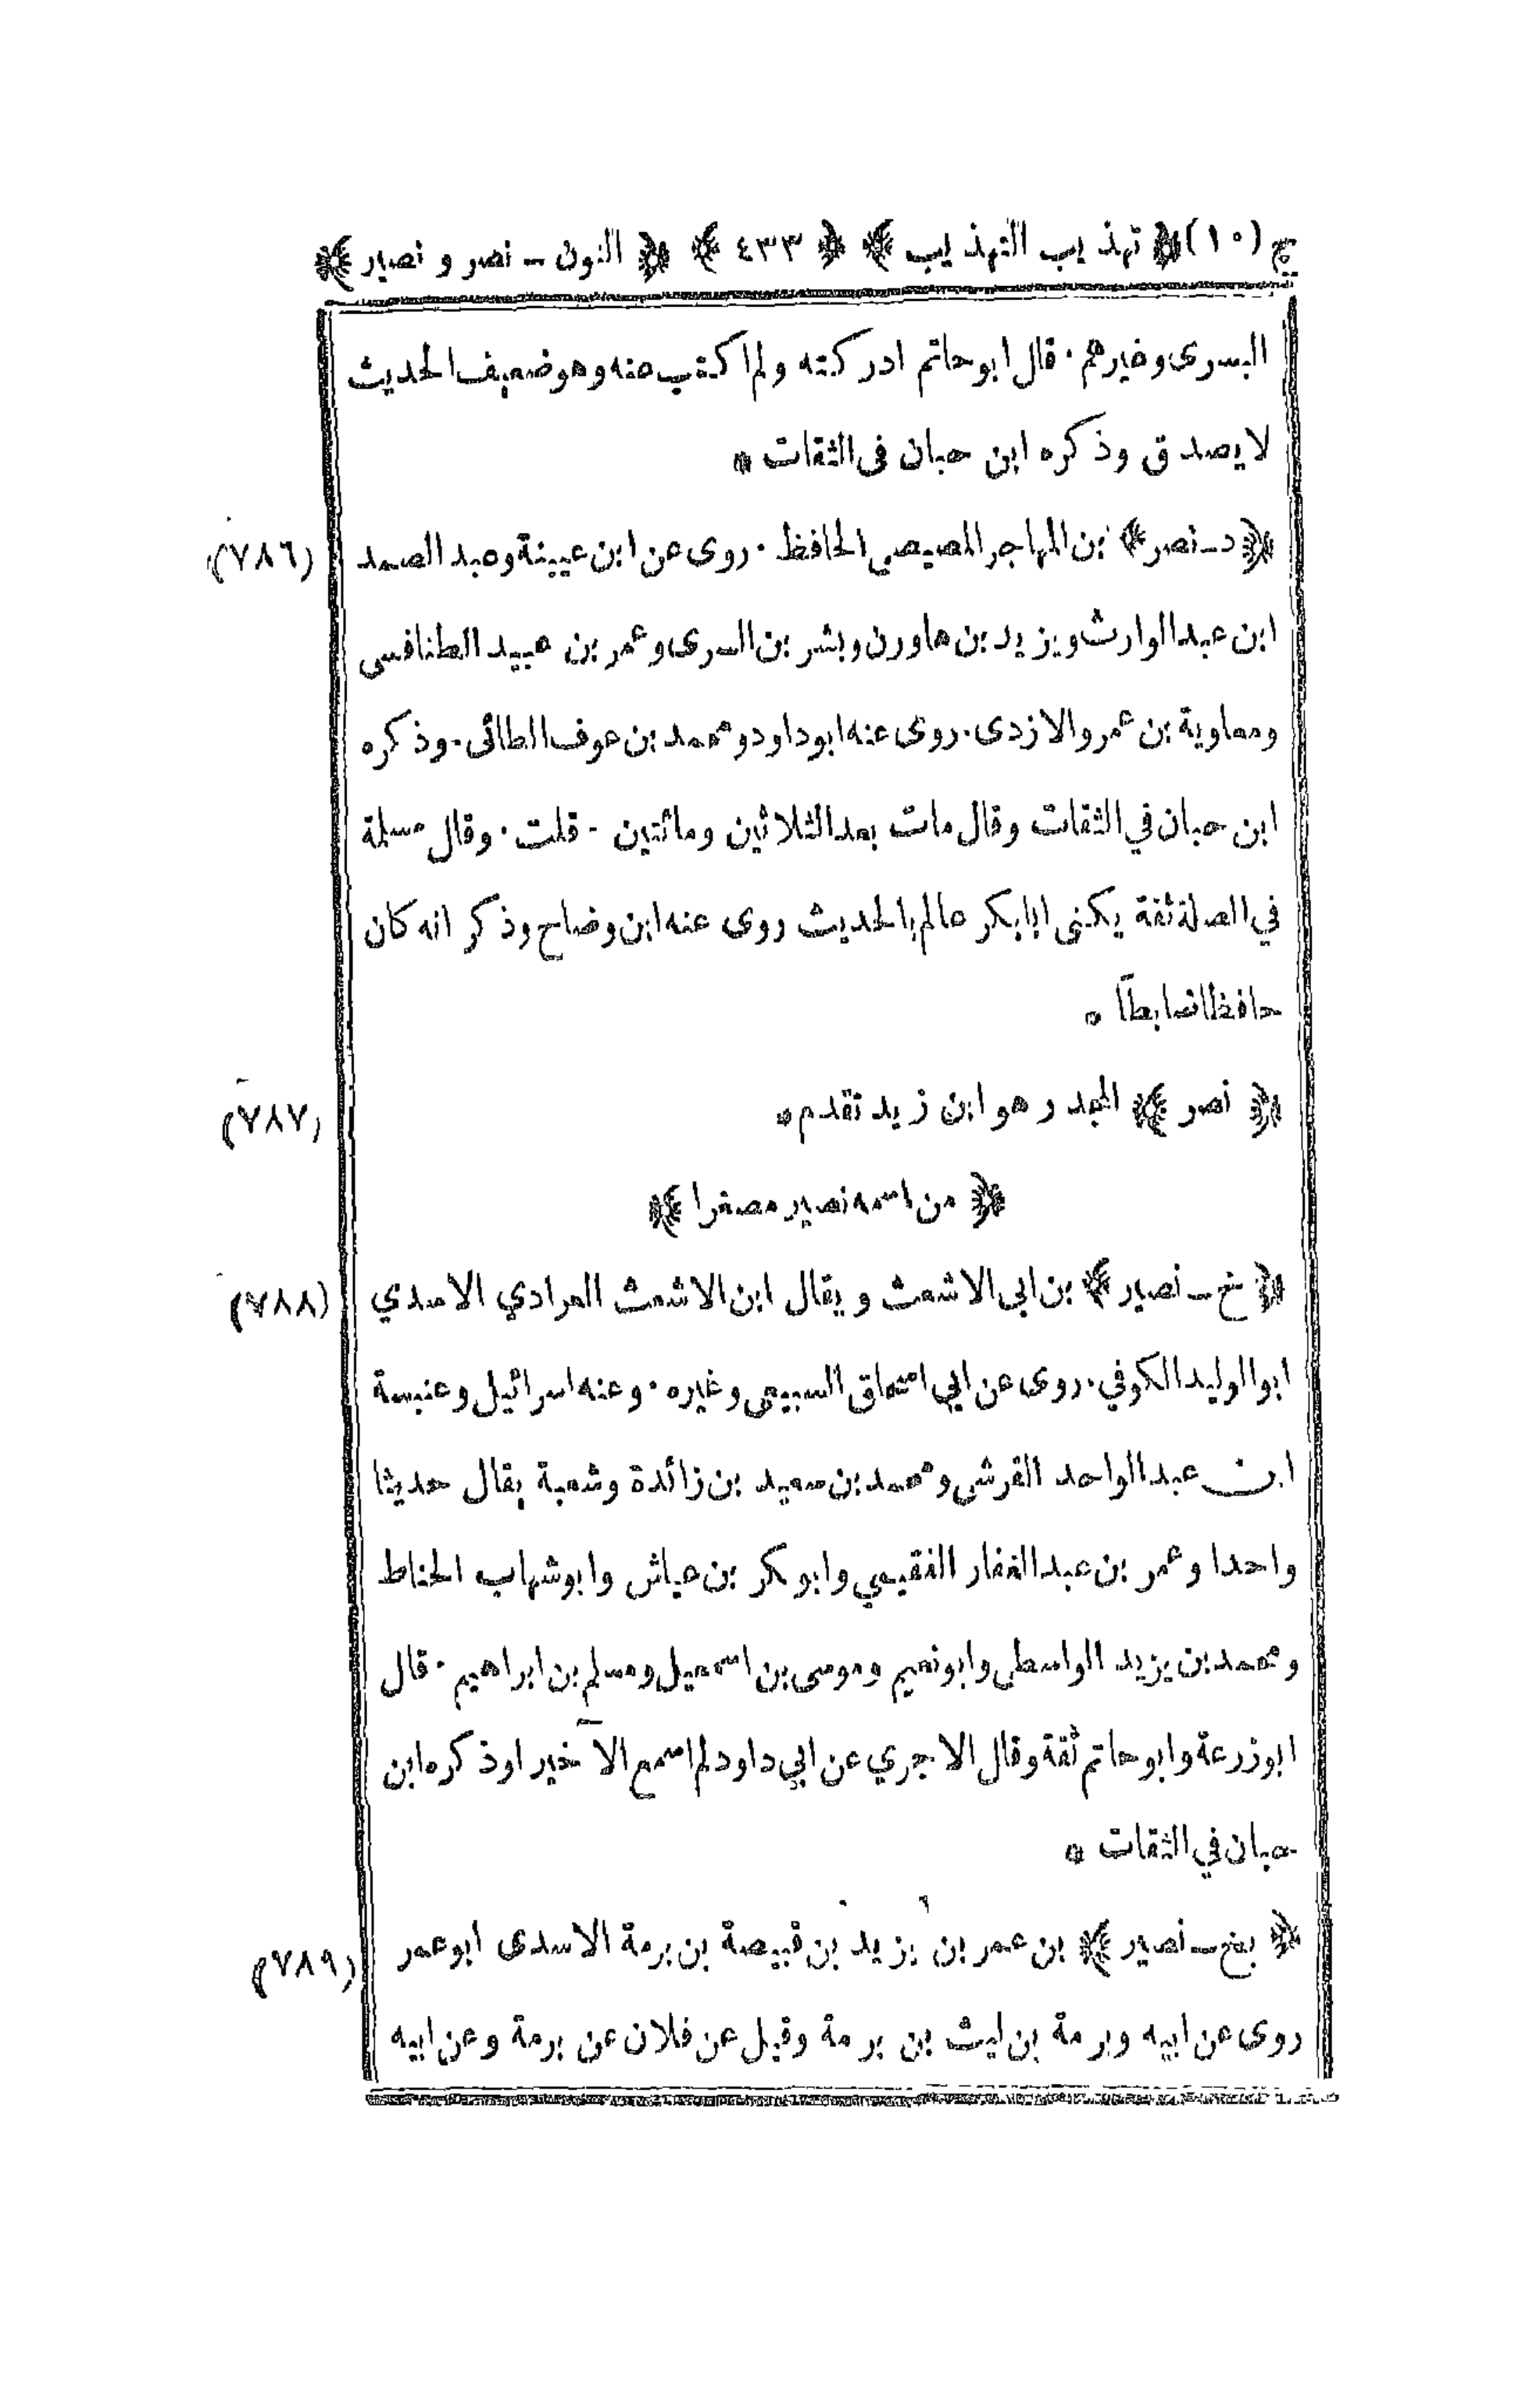 ج (١٠) ﴿ تهذيب التهذيب ﴾ ﴿ ٤٣٣ ﴾ ﴿ النون - نصر و نصير ﴾
البسرى وغيرهم · قال ابو حاتم ادركته ولم اكتب عنه وهو ضعيف الحديث
لا يصدق وذكره ابن حبان فى الثقات *
﴿ د - نصر ﴾ بن المهاجر المصيصي الحافظ · روى عن ابن عيينة وعبد الصمد
(٧٨٦)
ابن عبد الوارث ويزيد بن هاورن وبشر بن السرى وعمر بن عبيد الطنافسى
ومعاوية بن عمرو الازدى · روى عنه ابو داود و محمد بن عوف الطائى · وذكره
ابن حبان في الثقات وقال مات بعد الثلاثين ومائتين - قلت · وقال مسلمة
في الصلة ثقة يكنى ابابكر عالم بالحديث روى عنه ابن وضاح وذكر انه كان
حافظا ضابطاً *
﴿ نصر ﴾ المجدر هو ابن زيد تقدم *
(٧٨٧)
﴿ من اسمه نصير مصغرا ﴾
﴿ خ - نصير ﴾ بن ابى الاشعث ويقال ابن الاشعث المرادي الاسدي
(٧٨٨)
ابو الوليد الكوفي · روى عن ابي اسحاق السبيعى وغيره · وعنه اسرائيل وعنبسة
ابن عبد الواحد القرشى و محمد بن سعيد بن زائدة وشعبة يقال حديثا
واحدا وعمر بن عبد الغفار الفقيمي وابو بكر بن عياش وابو شهاب الحناط
و محمد بن يزيد الواسطى وابو نعيم وموسى بن اسمعيل ومسلم بن ابراهيم · قال
ابو زرعة وابو حاتم ثقة وقال الاجري عن ابي داود لم اسمع الآ خيرا وذكره ابن
حبان في الثقات *
﴿ بخ - نصير ﴾ بن عمر بن يزيد بن قبيصة بن برمة الاسدى ابو عمر
(٧٨٩)
روى عن ابيه وبرمة بن ليث بن برمة وقيل عن فلان عن برمة وعن ابيه